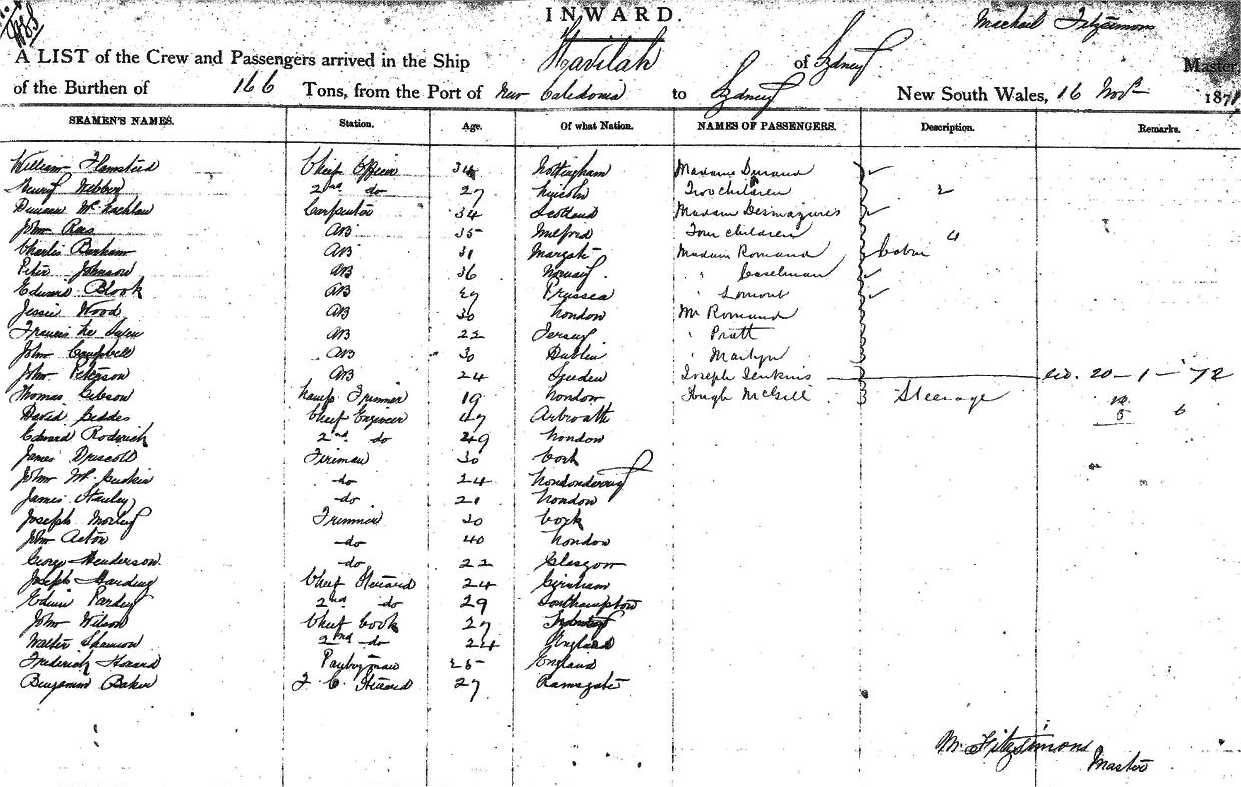 INWARD.
Michael Fitzsimons
A LIST of the Crew and Passengers arrived in the Ship Havilah of Sydney Master
of the Burthen of 166 Tons, from the Port of New Caledonia to Sydney New South Wales, 16 Novr 1871
SEAMEN'S NAMES. Station. Age. Of what Nation. NAMES OF PASSENGERS. Description. Remarks.
William Chief Officer 34 Nottingham Madame Durand
Henry Webber 2nd do 27 Lincoln Two Children 2
Duncan McLachlan Carpenter 34 Scotland Madam Desmazures
John Rees AB 35 Milford Four Children 4
Charles Benham AB 31 Margate Madam Romand Cabin
Peter Johnson AB 36 Norway " Casselman
Edward Blook AB 27 Prussia " Lomont
Jessie Wood AB 30 London Mr Romand
Francis Le AB 22 Jersey " Pratt
John Campbell AB 30 Dublin " Martyn
John Peterson AB 24 Sweden Joseph Jenkins 20-1-72
Thomas Gibson Lamp Trimmer 19 London Hugh McGill Steerage
David Geddes Chief Engineer 47 Arbroath 6
Edward Roderick 2nd do 29 London
James Driscoll Fireman 30 Cork
John do 24 Londonderry
James Stanley do 21 London
Joseph Morley Trimmer 30 Cork
John Acton do 40 London
George Henderson do 22 Glasgow
Joseph Harding Chief Steward 24
Edwin Pardey 2nd do 29 Southampton
John Wilson Chief Cook 27 Sydney
Walter 2nd do 24 England
Frederick Pantryman 25 England
Benjamin Baker F. C. Steward 27 Ramsgate
M. Fitzsimons
Master